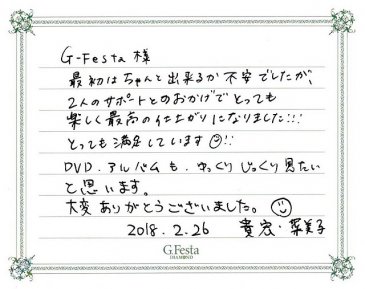 G-Festa 様
最初はちゃんと出来るか不安でしたが、
2人のサポートとのおかげでとっても
楽しく最高の仕上がりになりました!!!
とっても満足しています!!
DVD.アルバムも、ゆっくりじっくり見たい
と思います。
大変ありがとうございました。
2018.2.26 貴宏・菜美子
G.Festa
DIAMOND